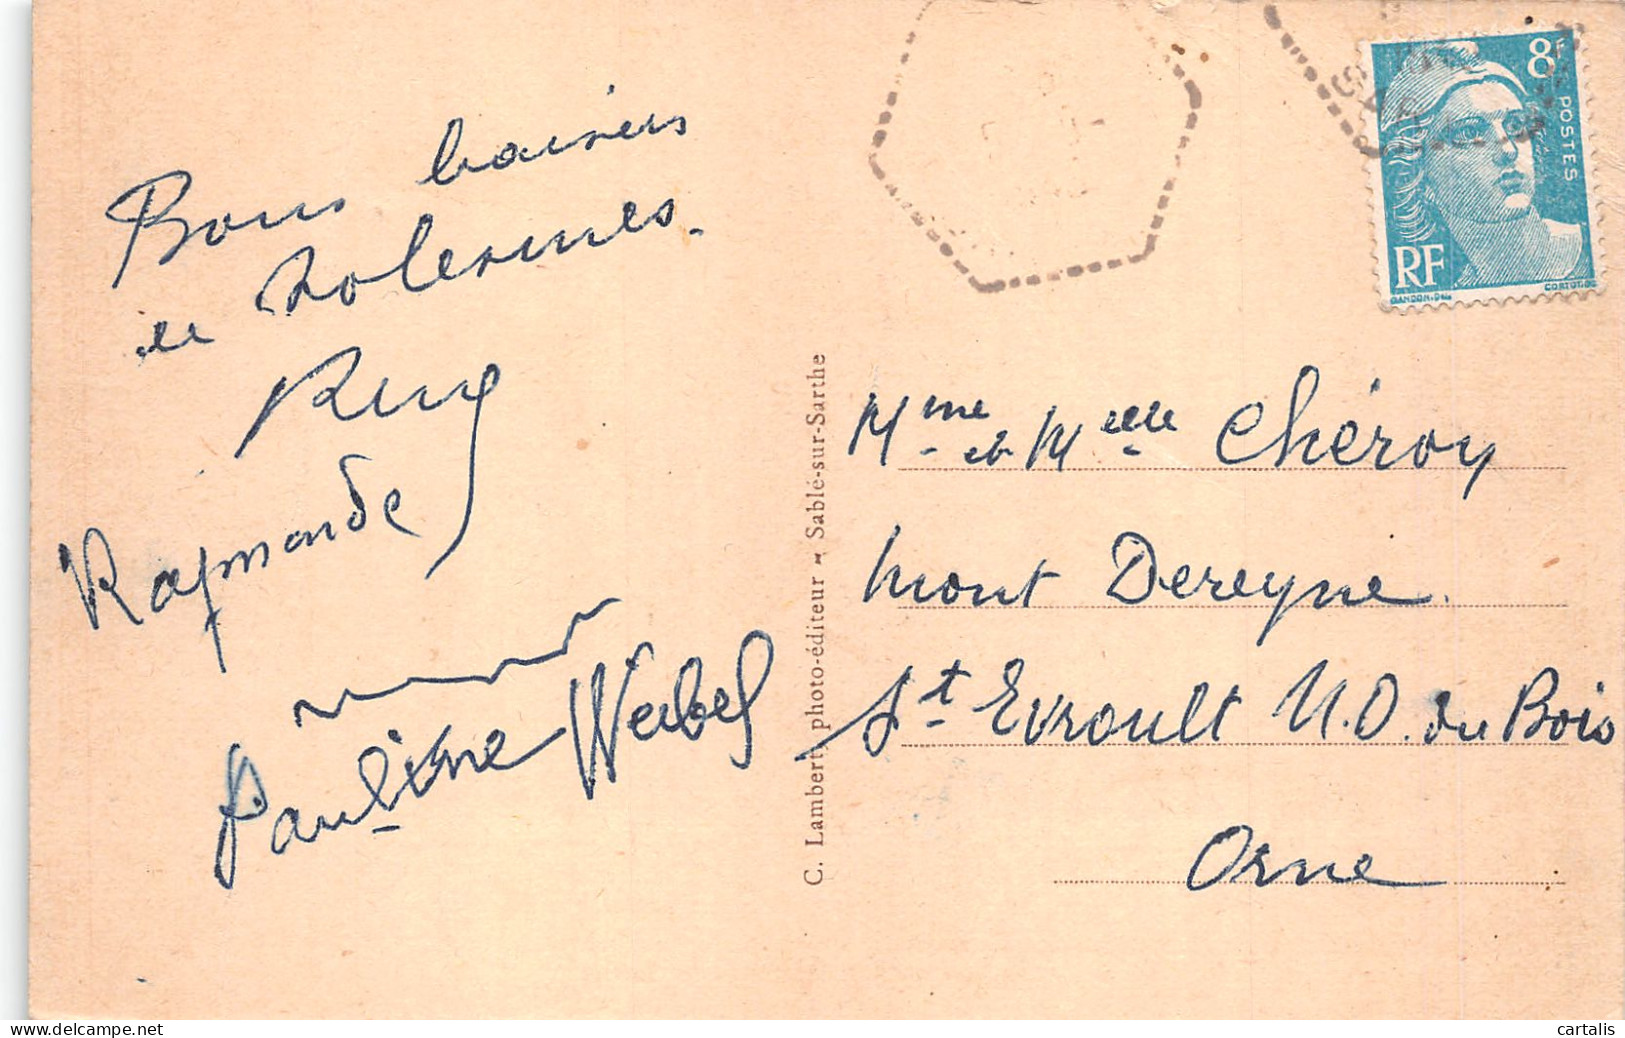 Bons baisers
de Solesmes.
Raymonde
Pauline Werbel
C. Lambert, photo-éditeur ~ Sablé-sur-Sarthe
8F
POSTES
RF
GANDON
CORTOT
SAR
Mme et Melle Chéroy
Mont Dereyne.
St Evroult N.D. du Bois
Orne
cartalis